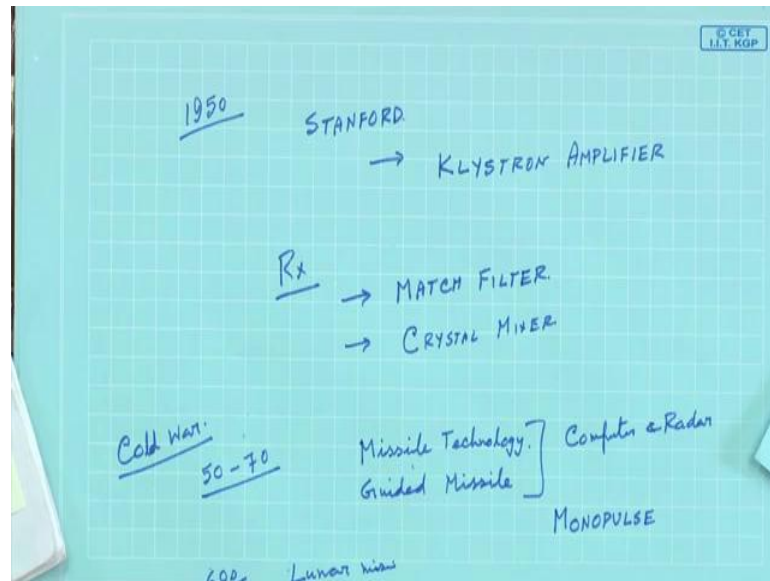 © CET
I.I.T. KGP
1950 STANFORD.
→ KLYSTRON AMPLIFIER
Rx → MATCH FILTER.
→ CRYSTAL MIXER
Cold War. 50-70
Missile Technology. ] Computer & Radar
Guided Missile
MONOPULSE
Lunar